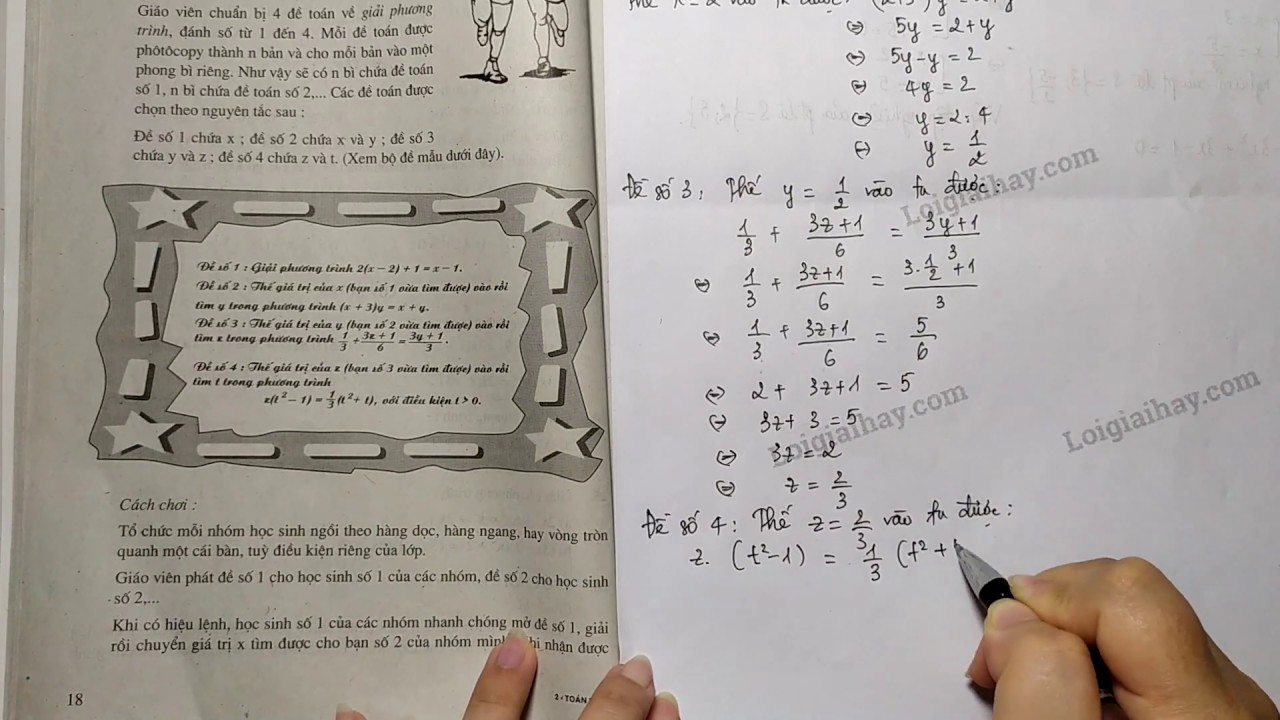 Giáo viên chuẩn bị 4 đề toán về giải phương
trình, đánh số từ 1 đến 4. Mỗi đề toán được
phôtôcopy thành n bản và cho mỗi bản vào một
phong bì riêng. Như vậy sẽ có n bì chứa đề toán
số 1, n bì chứa đề toán số 2,... Các đề toán được
chọn theo nguyên tắc sau :
Đề số 1 chứa x ; đề số 2 chứa x và y ; đề số 3
chứa y và z ; đề số 4 chứa z và t. (Xem bộ đề mẫu dưới đây).
Đề số 1 : Giải phương trình 2(x – 2) + 1 = x – 1.
Đề số 2 : Thế giá trị của x (bạn số 1 vừa tìm được) vào rồi
tìm y trong phương trình (x + 3)y = x + y.
Đề số 3 : Thế giá trị của y (bạn số 2 vừa tìm được) vào rồi
tìm z trong phương trình 1/3 + (3z + 1)/6 = (3y + 1)/3.
Đề số 4 : Thế giá trị của z (bạn số 3 vừa tìm được) vào rồi
tìm t trong phương trình
z(t² – 1) = 1/3(t² + t), với điều kiện t > 0.
Cách chơi :
Tổ chức mỗi nhóm học sinh ngồi theo hàng dọc, hàng ngang, hay vòng tròn
quanh một cái bàn, tuỳ điều kiện riêng của lớp.
Giáo viên phát đề số 1 cho học sinh số 1 của các nhóm, đề số 2 cho học sinh
số 2,...
Khi có hiệu lệnh, học sinh số 1 của các nhóm nhanh chóng mở đề số 1, giải
rồi chuyển giá trị x tìm được cho bạn số 2 của nhóm nhận được
18
⇔ 5y = 2 + y
⇔ 5y - y = 2
⇔ 4y = 2
⇔ y = 2 : 4
⇔ y = 1/2
Đề số 3 : Thế y = 1/2 vào ta được :
1/3 + (3z+1)/6 = (3y+1)/3
⇔ 1/3 + (3z+1)/6 = (3.1/2 + 1)/3
⇔ 1/3 + (3z+1)/6 = 5/6
⇔ 2 + 3z+1 = 5
⇔ 3z + 3 = 5
⇔ 3z = 2
⇔ z = 2/3
Đề số 4 : Thế z = 2/3 vào ta được :
z. (t²-1) = 1/3 (t² +
Loigiaihay.com
Loigiaihay.com
Loigiaihay.com